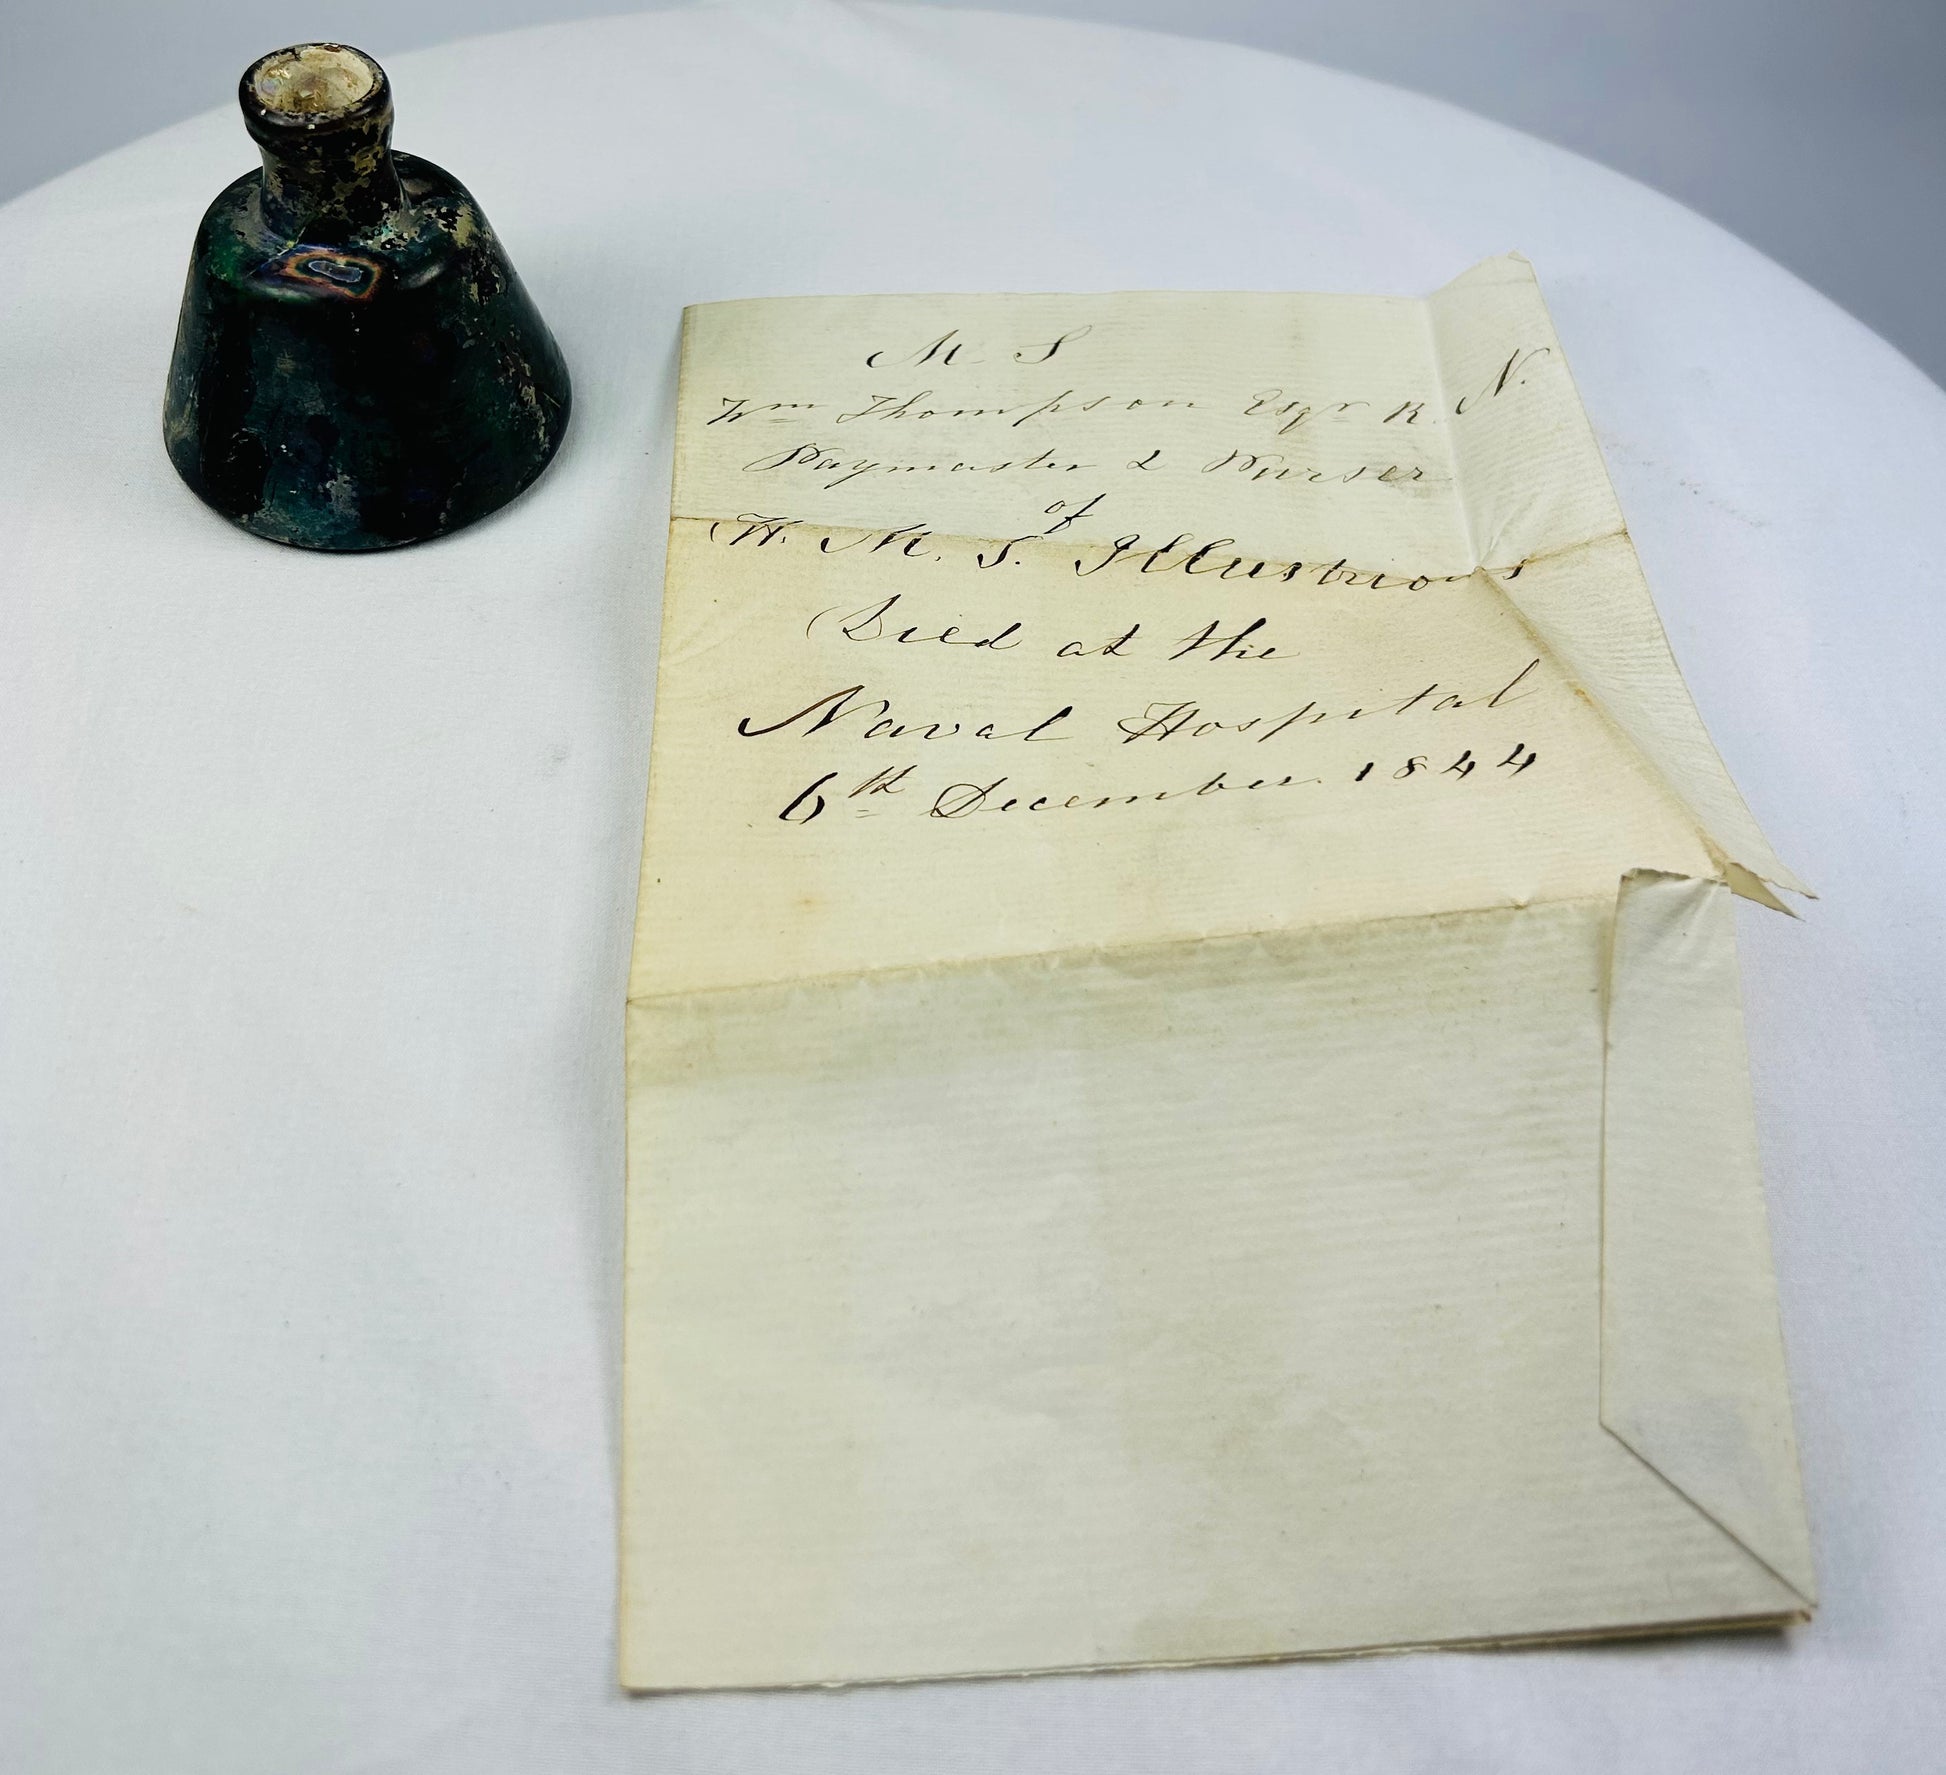 M. S
Wm Thompson Esqr R. N.
Paymaster & Purser
of
H. M. S. Illustrious
Died at the
Naval Hospital
6th December 1844